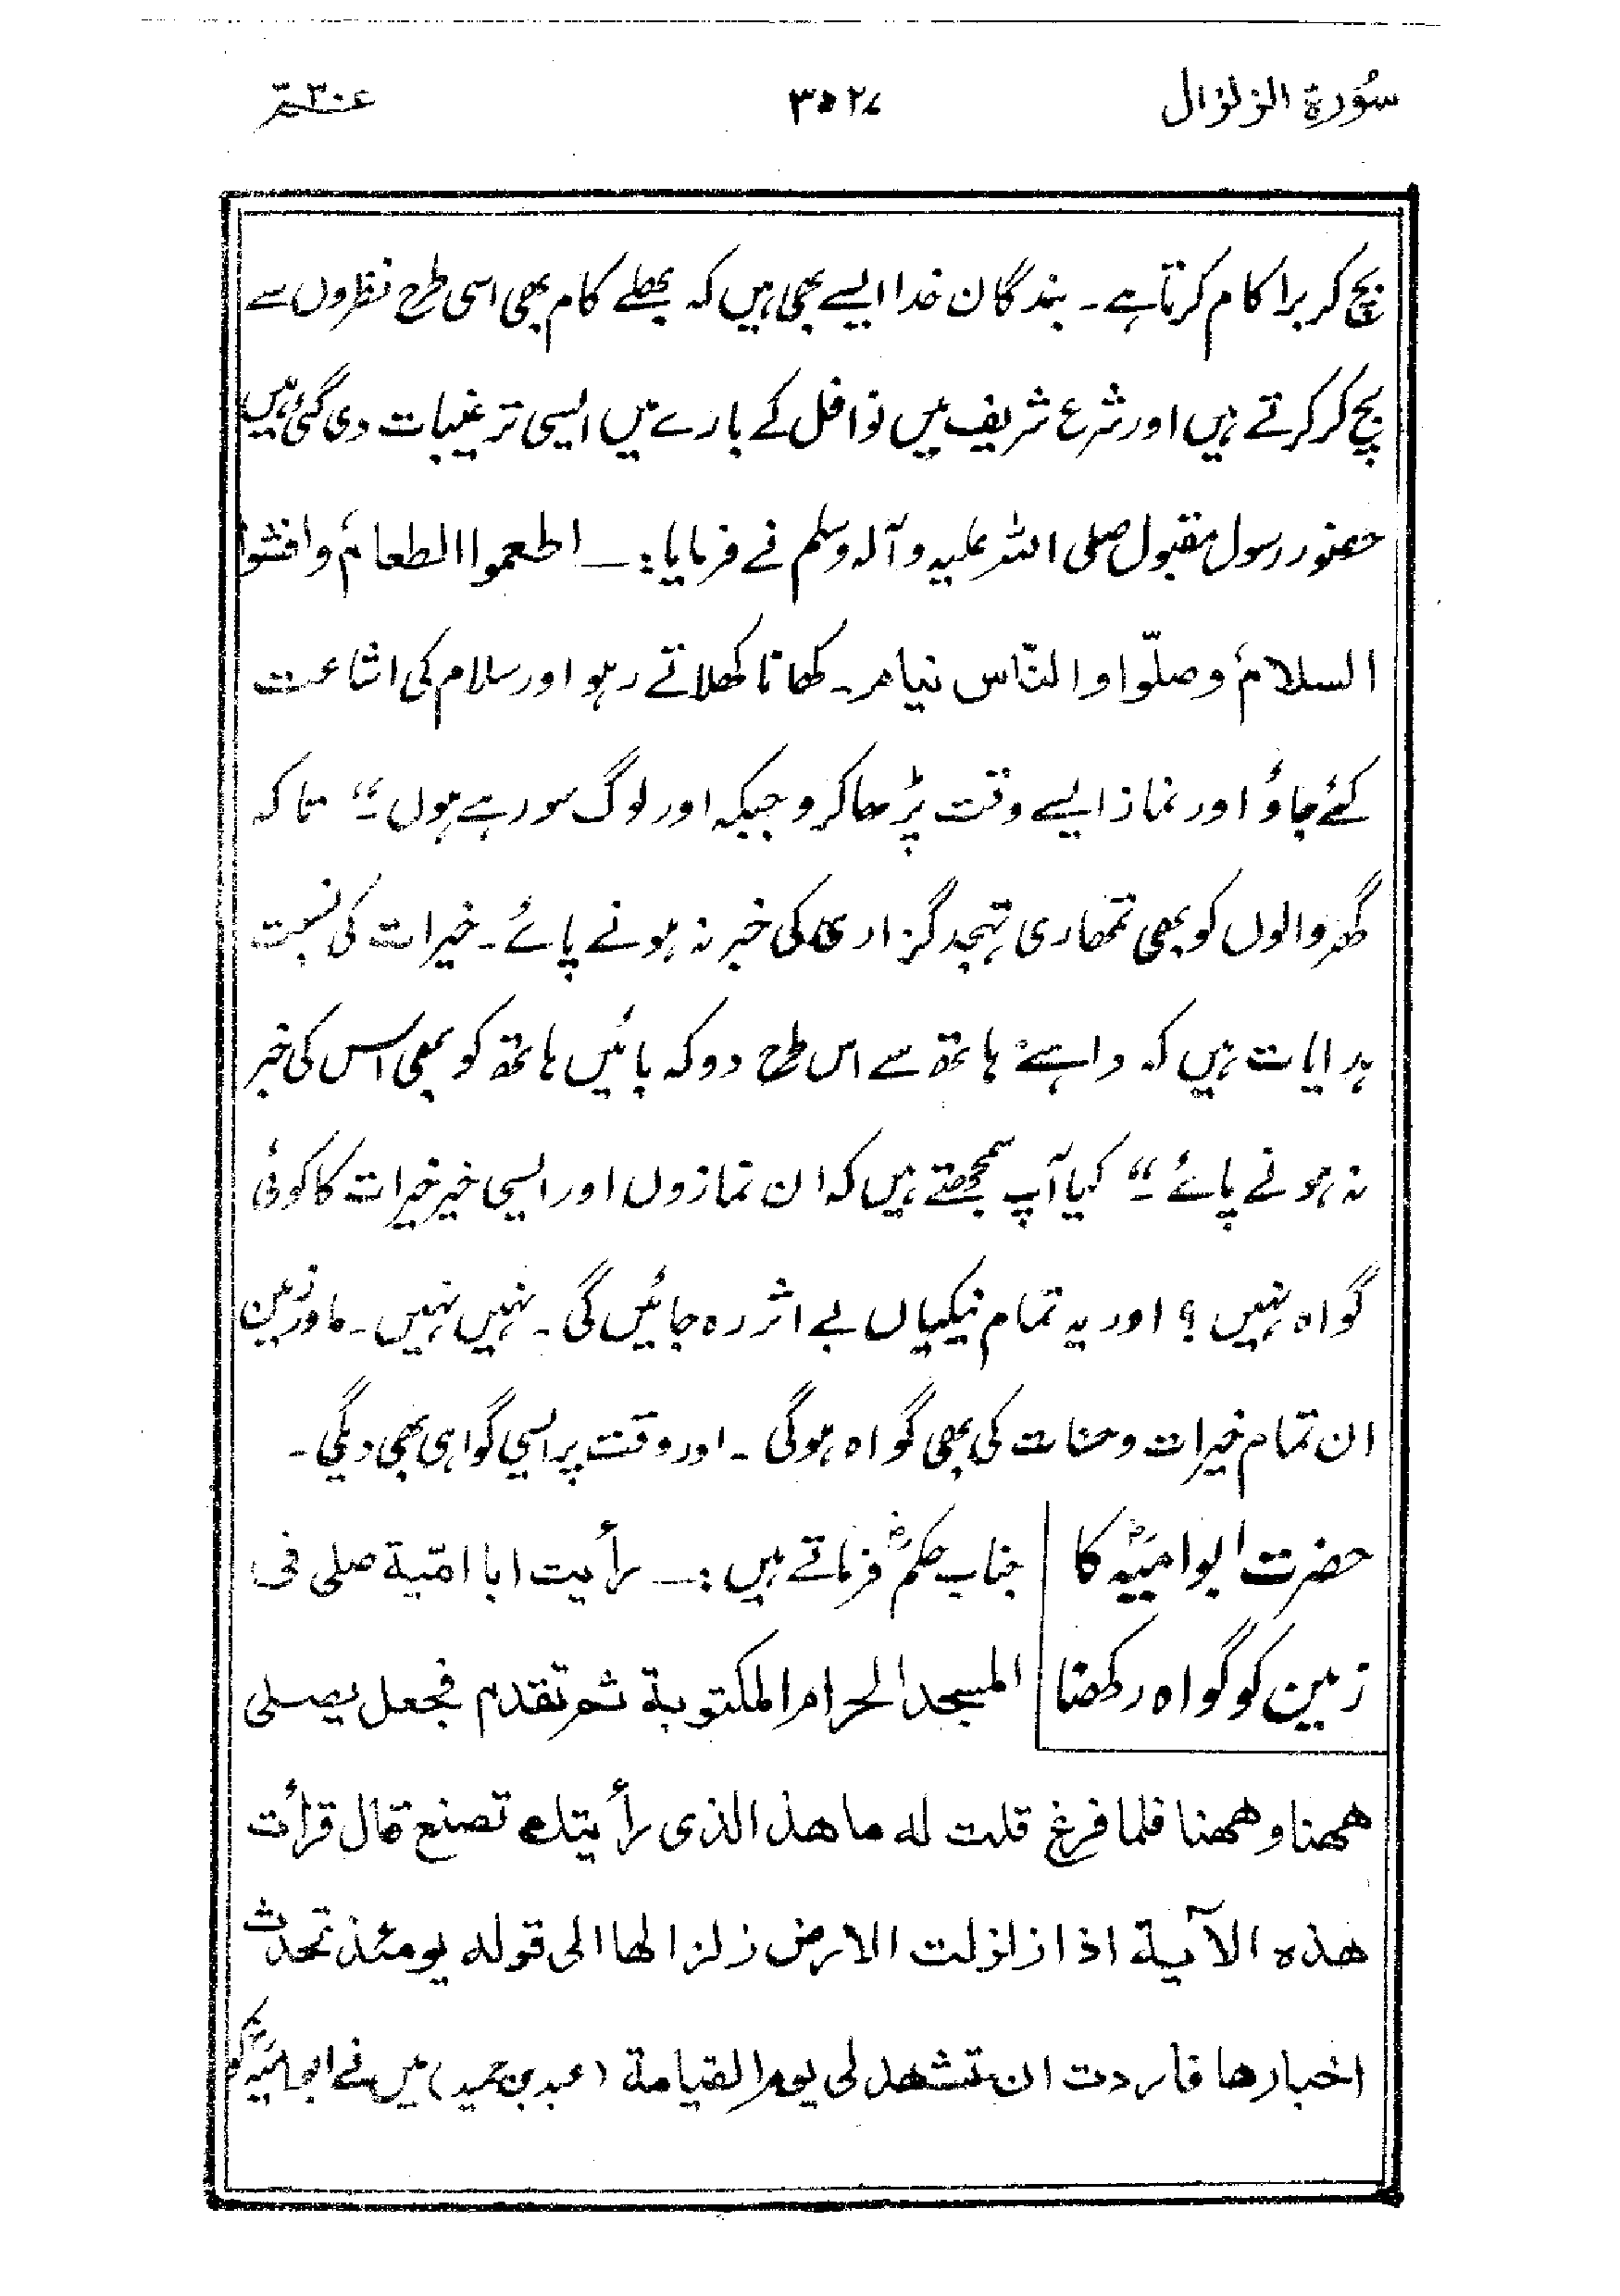 سُورة الزلزال
۳۵۲۷
عمّ ۳۰
بچ کر برا کام کرتا ہے۔ بندگان خدا ایسے بھی ہیں کہ بھلے کام بھی اسی طرح نظروں سے
بچ کر کرتے ہیں اور شرع شریف میں نوافل کے بارے میں ایسی ترغیبات دی گئی ہیں
حضور رسول مقبول صلی اللہ علیہ وآلہ وسلم نے فرمایا :۔ اطعموا الطعامَ وافشوا
السلامَ وصلّوا والنّاس نیام۔ کھانا کھلاتے رہو اور سلام کی اشاعت
کئے جاؤ اور نماز ایسے وقت پڑھا کرو جبکہ اور لوگ سو رہے ہوں۔“ تاکہ
گھر والوں کو بھی تمھاری تہجد گزاری کی خبر نہ ہونے پائے۔ خیرات کی نسبت
ہدایات ہیں کہ داہنے ہاتھ سے اس طرح دو کہ بائیں ہاتھ کو بھی اس کی خبر
نہ ہونے پائے۔“ کیا آپ سمجھتے ہیں کہ ان نمازوں اور ایسی خیر خیرات کا کوئی
گواہ نہیں؟ اور یہ تمام نیکیاں بے اثر رہ جائیں گی۔ نہیں نہیں۔ مادر زمین
ان تمام خیرات و حسنات کی بھی گواہ ہوگی۔ اور وقت پر ایسی گواہی بھی دیگی۔
حضرت ابو امیہؓ کا
زمین کو گواہ رکھنا
جناب حکمؓ فرماتے ہیں :۔ رأیت ابا امّیة صلی فی
المسجد الحرام المکتوبة ثم تقدم فجعل یصلی
ھھنا وھھنا فلما فرغ قلت له ما ھذا الذی رأیتك تصنع قال قرأت
ھذہ الآیة اذا زلزلت الارض زلزالھا الی قوله یومئذ تحدث
اخبارھا فاردت ان تشھد لی یوم القیامة (عبد بن حمید) میں نے ابو امیہؓ کو